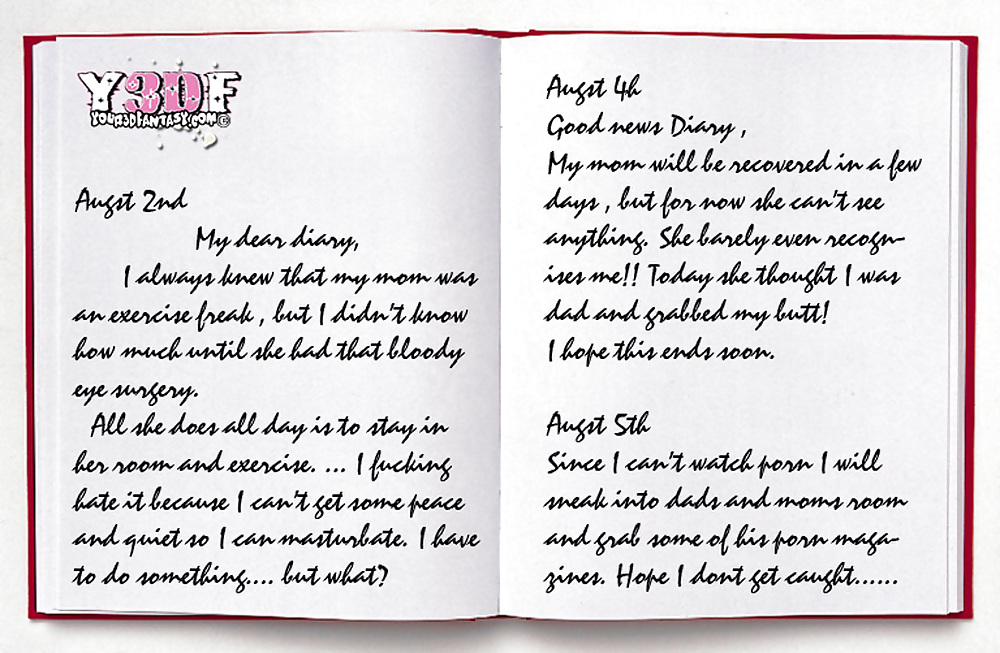 Y3DF
YOUR3DFANTASY.COM©
Augst 2nd
My dear diary,
I always knew that my mom was
an exercise freak , but I didn't know
how much until she had that bloody
eye surgery.
All she does all day is to stay in
her room and exercise. ... I fucking
hate it because I can't get some peace
and quiet so I can masturbate. I have
to do something.... but what?
Augst 4h
Good news Diary ,
My mom will be recovered in a few
days , but for now she can't see
anything. She barely even recogn-
ises me!! Today she thought I was
dad and grabbed my butt!
I hope this ends soon.
Augst 5th
Since I can't watch porn I will
sneak into dads and moms room
and grab some of his porn maga-
zines. Hope I dont get caught......